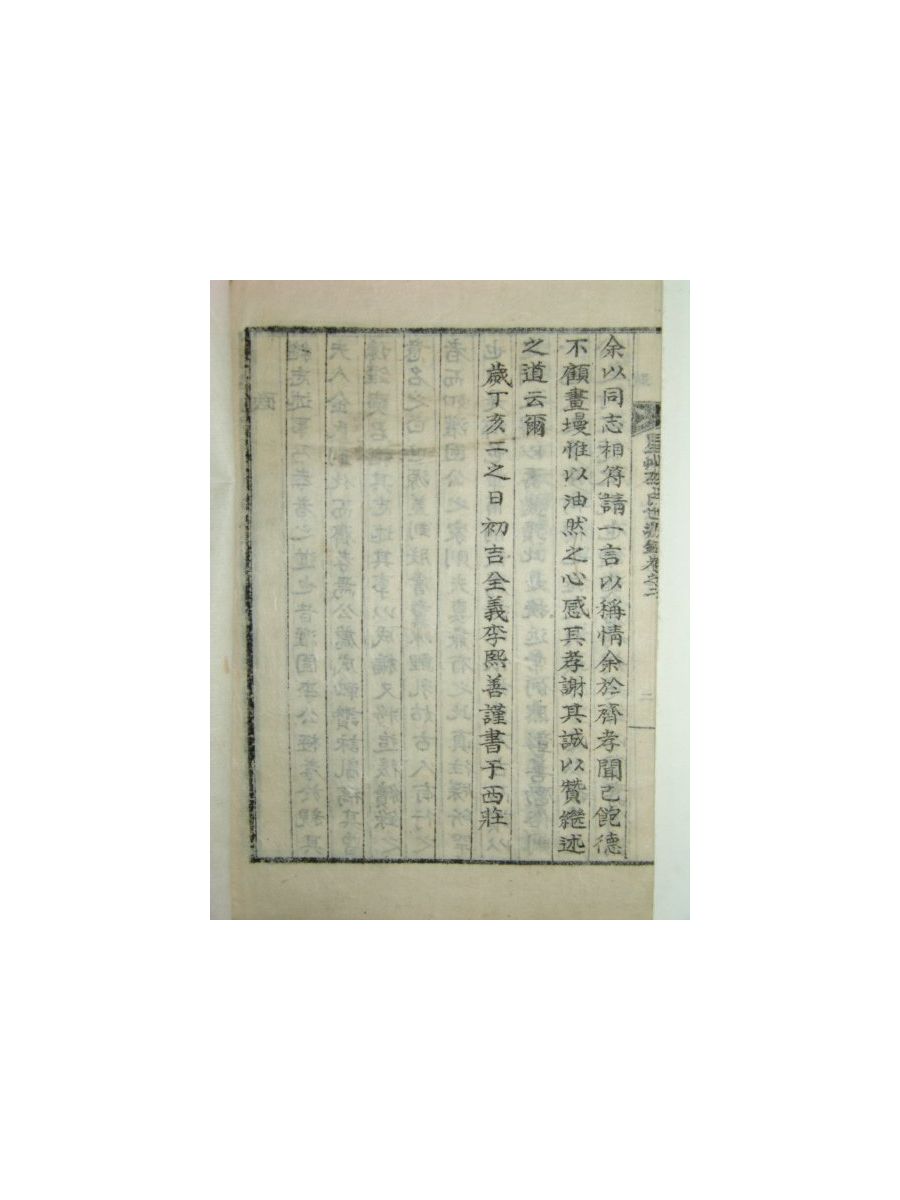 余以同志相符請一言以稱情余於齊孝聞已飽德
不顧畫墁惟以油然之心感其孝謝其誠以贊繼述
之道云爾
歲丁亥三之日初吉全義李熙善謹書于西莊
氏世源錄卷之二
二